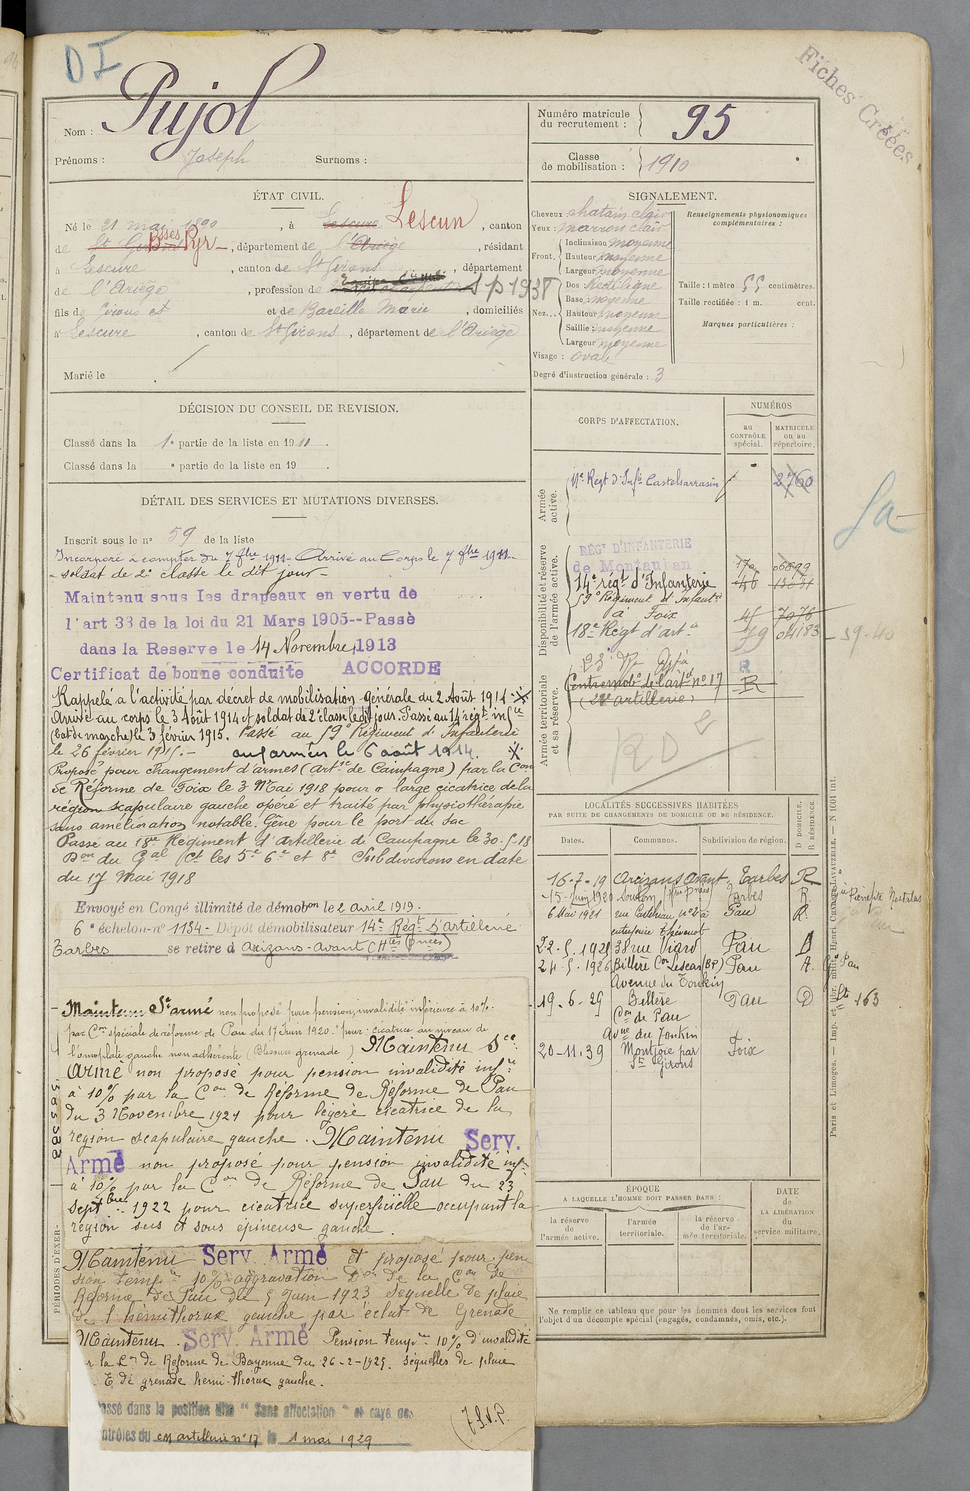 DI
Fiches Créées
Nom : Pujol
Prénoms : Joseph Surnoms :
Numéro matricule du recrutement : 95
Classe de mobilisation : 1910
ÉTAT CIVIL.
Né le 21 mai 1890, à Lescure Lescun, canton
de St Girons Bsses Pyr, département de l'Ariège, résidant
à Lescure, canton de St Girons, département
de l'Ariège, profession de
fils de Girons et et de Bareille Marie, domiciliés
à Lescure, canton de St Girons, département de l'Ariège
Marié le
SIGNALEMENT.
Cheveux chatain clair
Yeux : marron clair
Front. Inclinaison moyenne
Hauteur moyenne
Largeur moyenne
Nez... Dos Rectiligne
Base moyenne
Hauteur moyenne
Saillie : moyenne
Largeur moyenne
Visage : ovale
Degré d'instruction générale : 3
Renseignements physionomiques complémentaires :
Taille : 1 mètre 55 centimètres.
Taille rectifiée : 1 m. cent.
Marques particulières :
DÉCISION DU CONSEIL DE REVISION.
Classé dans la 1e partie de la liste en 1911.
Classé dans la e partie de la liste en 19 .
DÉTAIL DES SERVICES ET MUTATIONS DIVERSES.
Inscrit sous le no 59 de la liste
Incorporé à compter du 7 8bre 1911 Arrivé au Corps le 7 8bre 1911
soldat de 2e classe le dit jour
Maintenu sous les drapeaux en vertu de
l'art 33 de la loi du 21 Mars 1905--Passé
dans la Reserve le 14 Novembre 1913
Certificat de bonne conduite ACCORDE
Rappelé à l'activité par décret de mobilisation générale du 2 Août 1914
Arrivé au corps le 3 Août 1914 et soldat de 2e classe ledit jour. Passé au 14e régt. infie
(Bat de marche) le 3 février 1915. Passé au 59e Régiment d'Infanterie
le 26 février 1915. — aux armées le 6 août 1914.
Proposé pour changement d'armes (Artie de Campagne) par la Con
de Réforme de Foix le 3 Mai 1918 pour large cicatrice de la
région scapulaire gauche opéré et traité par physiothérapie
sans amélioration notable. Gêne pour le port du sac
Passé au 18e Régiment d'Artillerie de Campagne le 30-5-18
Don du Gal Ct les 5e 6e et 8e Subdivisions en date
du 17 Mai 1918
Envoyé en Congé illimité de démobon le 2 avril 1919.
6e échelon-no 1134. Dépot démobilisateur 14e Régt D'Artillerie
Tarbes se retire à Arizans-Avant (Htes Pnées)
Maintenu Sce armé non proposé pour pension, invalidité inférieure à 10%
par Con spéciale de réforme de Pau du 17 Juin 1920. pour : cicatrice au niveau de
l'omoplate gauche non adhérente (Blessure grenade) Maintenu Sce
Armé non proposé pour pension invalidité infre
à 10% par la Con de Réforme de Réforme de Pau
du 3 Novembre 1921 pour légère cicatrice de la
région scapulaire gauche. Maintenu Serv.
Armé non proposé pour pension invalidité infre
à 10% par la Con de Réforme de Pau du 23
Septbre 1922 pour cicatrice superficielle occupant la
région sus et sous épineuse gauche
Maintenu Serv. Armé et proposé pour pen
sion tempre 10% aggravation Don de la Con de
Réforme de Pau du 5 Juin 1923 Séquelle de plaie
de l'hémithorax gauche par éclat de Grenade
Maintenu. Serv. Armé Pension tempre 10% d'invalidité
la Cn de Réforme de Bayonne du 26-2-1925. Séquelles de plaie
E de grenade hémi-thorax gauche.
assé dans la position dite "Sans affectation" et rayé des
ntrôles du cm artillerie no 17 le 1 mai 1929
PÉRIODES D'EXER-
CORPS D'AFFECTATION.
NUMÉROS
au CONTRÔLE spécial.
MATRICULE ou au répertoire.
Armée active.
Régt d'Infie Castelsarrasin 2760
Disponibilité et réserve de l'armée active.
RÉGt D'INFANTERIE
de Montauban
14e régt d'Infanterie
59e Régiment d'Infantie
à Foix 7076
18e Régt d'Artie 79 04183 39-40
Armée territoriale et sa réserve.
23e Rt Artie R
Centre mobe de l'artie no 17 R
(artillerie)
RD2
LOCALITÉS SUCCESSIVES HABITÉES
PAR SUITE DE CHANGEMENTS DE DOMICILE OU DE RÉSIDENCE.
Dates. Communes. Subdivision de région. D DOMICILE. R RÉSIDENCE.
16-7-19 Arcizans Avant Tarbes R
15-Juin 1920 Tarbes R.
6 Mai 1921 Pau R.
22-5-1925 38 rue Viard Pau D
24-5-1926 Billère Con Lescar (BP) Pau
Avenue du Tonkin
19-6-29 Billère Pau D
Con de Pau
Avue du Tonkin
20-11-39 Montjoie par Foix
St Girons
ÉPOQUE
A LAQUELLE L'HOMME DOIT PASSER DANS :
la réserve de l'armée active.
l'armée territoriale.
la réserve de l'armée territoriale.
DATE de LA LIBÉRATION du service militaire.
Ne remplir ce tableau que pour les hommes dont les services font
l'objet d'un décompte spécial (engagés, condamnés, omis, etc.).